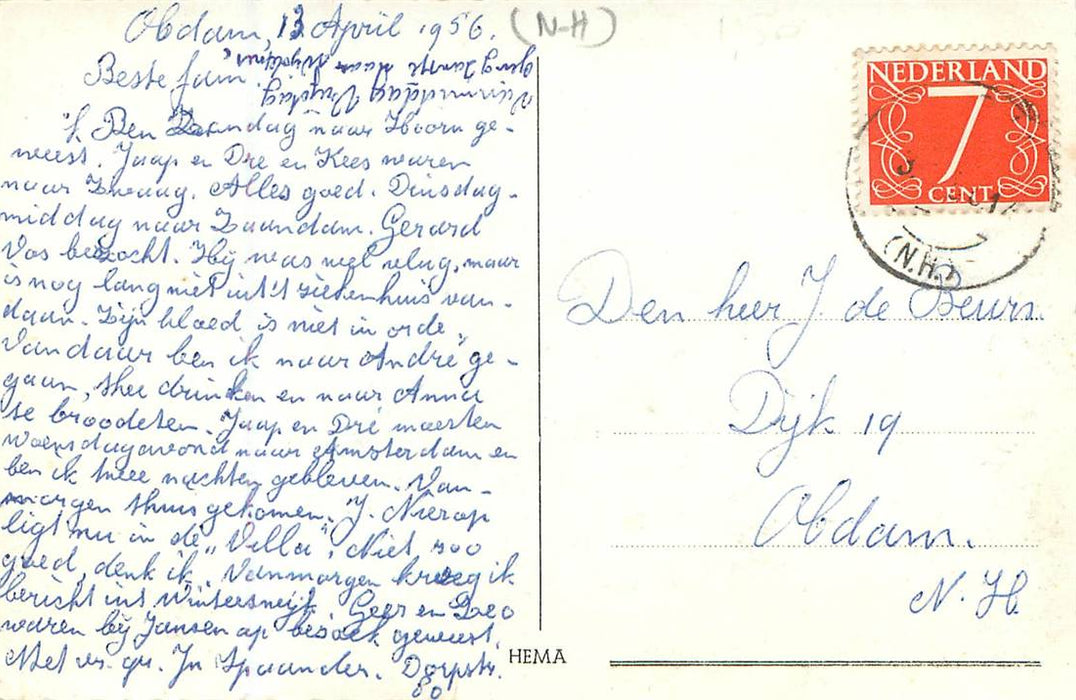 Obdam, 13 April 1956. (N-H)
Beste fam.
'k Ben Zondag naar Hoorn ge-
weest. Jaap en Dré en Kees waren
naar Zwaag. Alles goed. Dinsdag-
middag naar Zaandam. Gerard
Vos bezocht. Hij was wel vlug, maar
is nog lang niet uit 't ziekenhuis van-
daan. Zijn bloed is niet in orde.
Vandaar ben ik naar André ge-
gaan, thee drinken en naar Anna
te broodeten. Jaap en Dré moesten
Woensdagavond naar Amsterdam en
ben ik twee nachten gebleven. Van-
morgen thuis gekomen. J. Nierop
ligt nu in de „Villa". Niet zoo
goed, denk ik. Vanmorgen kreeg ik
bericht uit Winterswijk. Geer en
waren bij Jansen op bezoek geweest.
Met vr. gr. Jn Spaander. Dorpstr.
80
Vanmiddag Vrijdag
ging Jansje naar
NEDERLAND
7
CENT
(N.H.)
Den heer J. de Beurs.
Dijk 19
Obdam.
N. H.
HEMA